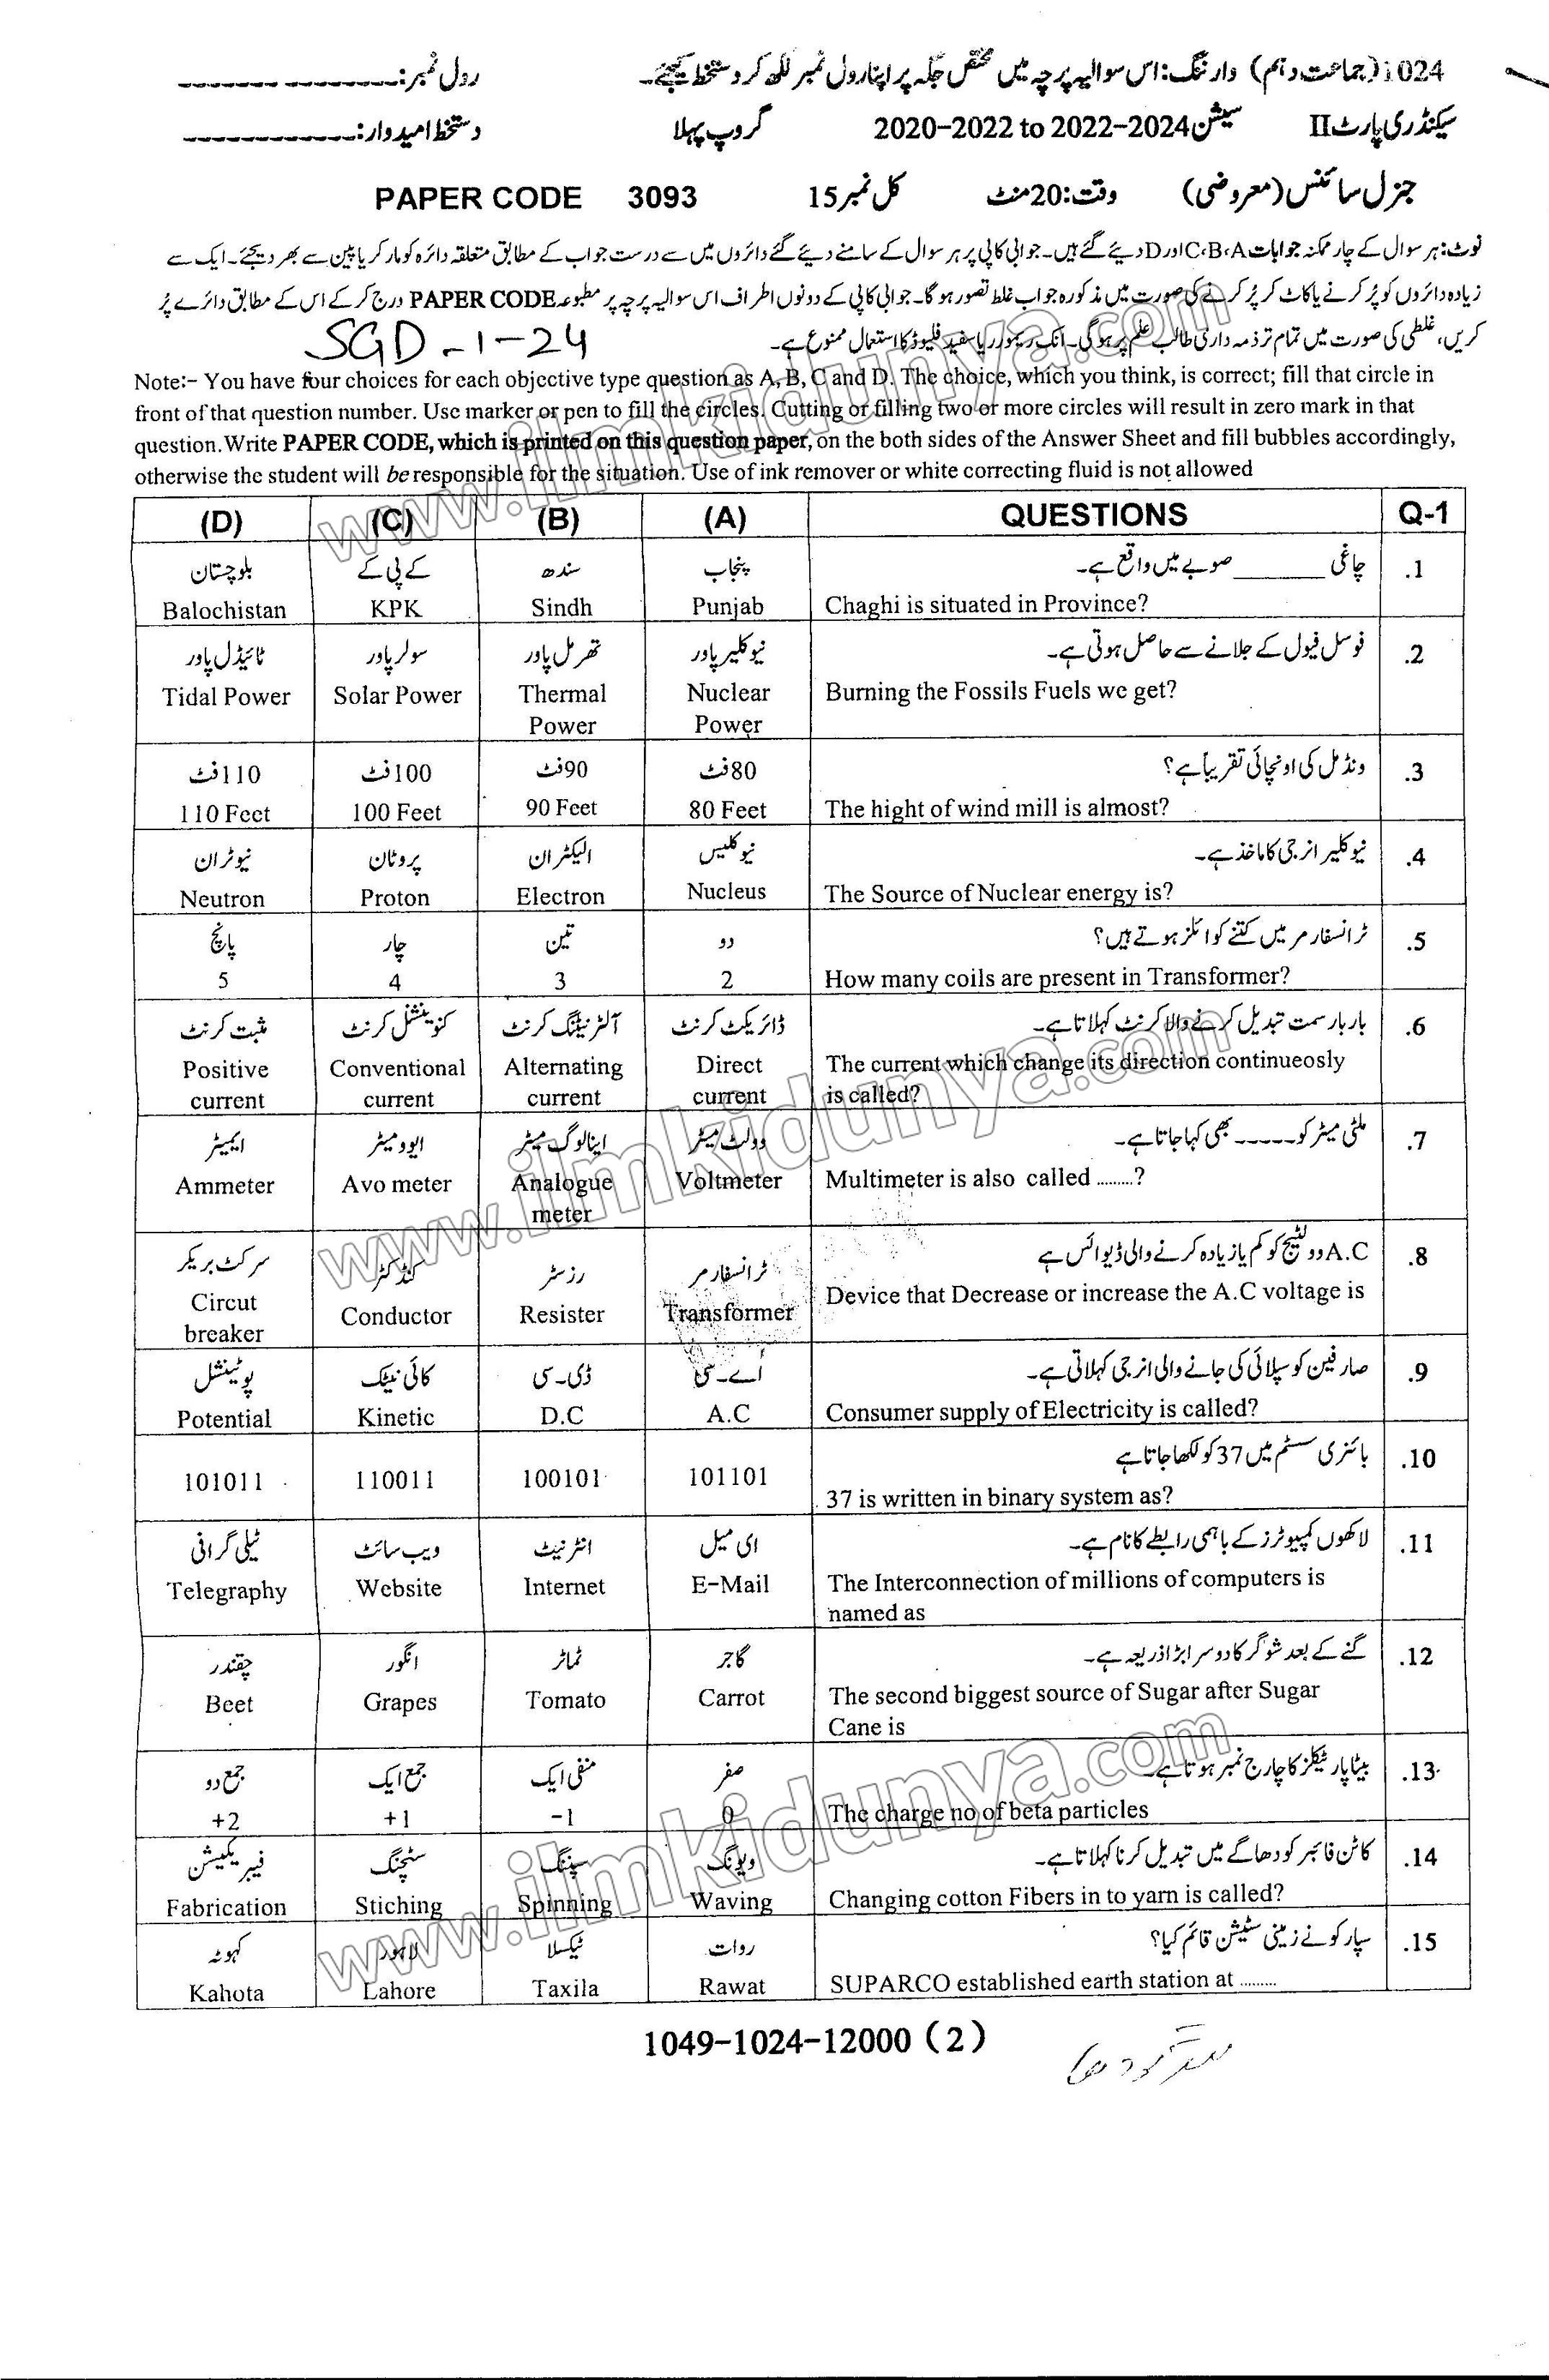 1024 (جماعت دہم) وارننگ: اس سوالیہ پرچہ میں مختص جگہ پر اپنا رول نمبر لکھ کر دستخط کیجئے۔ رول نمبر: ------------
سیکنڈری پارٹ II سیشن 2020-2022 to 2022-2024 گروپ پہلا دستخط امیدوار: ------------
جنرل سائنس (معروضی) وقت: 20 منٹ کل نمبر 15 PAPER CODE 3093
نوٹ: ہر سوال کے چار ممکنہ جوابات C،B،A اور D دیئے گئے ہیں۔ جوابی کاپی پر ہر سوال کے سامنے دیئے گئے دائروں میں سے درست جواب کے مطابق متعلقہ دائرہ کو مارکر یا پین سے بھر دیجئے۔ ایک سے
زیادہ دائروں کو پُر کرنے یا کاٹ کر پُر کرنے کی صورت میں مذکورہ جواب غلط تصور ہوگا۔ جوابی کاپی کے دونوں اطراف اس سوالیہ پرچہ پر مطبوعہ PAPER CODE درج کر کے اس کے مطابق دائرے پُر
کریں، غلطی کی صورت میں تمام تر ذمہ داری طالب علم پر ہوگی۔ انک ریموور یا سفید فلیوڈ کا استعمال ممنوع ہے۔
SGD-1-24
Note:- You have four choices for each objective type question as A, B, C and D. The choice, which you think, is correct; fill that circle in
front of that question number. Use marker or pen to fill the circles. Cutting or filling two or more circles will result in zero mark in that
question. Write PAPER CODE, which is printed on this question paper, on the both sides of the Answer Sheet and fill bubbles accordingly,
otherwise the student will be responsible for the situation. Use of ink remover or white correcting fluid is not allowed
(D) (C) (B) (A) QUESTIONS Q-1
بلوچستان کے پی کے سندھ پنجاب چاغی ______ صوبے میں واقع ہے۔ .1
Balochistan KPK Sindh Punjab Chaghi is situated in Province?
ٹائیڈل پاور سولر پاور تھرمل پاور نیوکلیر پاور فوسل فیول کے جلانے سے حاصل ہوتی ہے۔ .2
Tidal Power Solar Power Thermal Nuclear Burning the Fossils Fuels we get?
Power Power
110فٹ 100فٹ 90فٹ 80فٹ ونڈ مل کی اونچائی تقریباً ہے؟ .3
110 Feet 100 Feet 90 Feet 80 Feet The hight of wind mill is almost?
نیوٹران پروٹان الیکٹران نیوکلیس نیوکلیر انرجی کا ماخذ ہے۔ .4
Neutron Proton Electron Nucleus The Source of Nuclear energy is?
پانچ چار تین دو ٹرانسفارمر میں کتنے کوائلز ہوتے ہیں؟ .5
5 4 3 2 How many coils are present in Transformer?
مثبت کرنٹ کنوینشنل کرنٹ آلٹرنیٹنگ کرنٹ ڈائریکٹ کرنٹ بار بار سمت تبدیل کرنے والا کرنٹ کہلاتا ہے۔ .6
Positive Conventional Alternating Direct The current which change its direction continueosly
current current current current is called?
ایمیٹر ایوو میٹر اینالوگ میٹر وولٹ میٹر ملٹی میٹر کو ----- بھی کہا جاتا ہے۔ .7
Ammeter Avo meter Analogue Voltmeter Multimeter is also called .........?
meter
سرکٹ بریکر کنڈکٹر رزسٹر ٹرانسفارمر A.C وولٹیج کو کم یا زیادہ کرنے والی ڈیوائس ہے .8
Circut Conductor Resister Transformer Device that Decrease or increase the A.C voltage is
breaker
پوٹینشل کائی نیٹک ڈی۔سی اے۔سی صارفین کو سپلائی کی جانے والی انرجی کہلاتی ہے۔ .9
Potential Kinetic D.C A.C Consumer supply of Electricity is called?
بائنری سسٹم میں 37 کو لکھا جاتا ہے .10
101011 110011 100101 101101 37 is written in binary system as?
ٹیلی گرافی ویب سائٹ انٹرنیٹ ای میل لاکھوں کمپیوٹرز کے باہمی رابطے کا نام ہے۔ .11
Telegraphy Website Internet E-Mail The Interconnection of millions of computers is
named as
چقندر انگور ٹماٹر گاجر گنے کے بعد شوگر کا دوسرا بڑا ذریعہ ہے۔ .12
Beet Grapes Tomato Carrot The second biggest source of Sugar after Sugar
Cane is
جمع دو جمع ایک منفی ایک صفر بیٹا پارٹیکلز کا چارج نمبر ہوتا ہے۔ .13
+2 +1 -1 0 The charge no of beta particles
فیبریکیشن سٹچنگ سپننگ ویونگ کاٹن فائبر کو دھاگے میں تبدیل کرنا کہلاتا ہے۔ .14
Fabrication Stiching Spinning Waving Changing cotton Fibers in to yarn is called?
کہوٹہ لاہور ٹیکسلا روات سپارکو نے زمینی سٹیشن قائم کیا؟ .15
Kahota Lahore Taxila Rawat SUPARCO established earth station at .........
1049-1024-12000 (2)
www.ilmkidunya.com
www.ilmkidunya.com
www.ilmkidunya.com